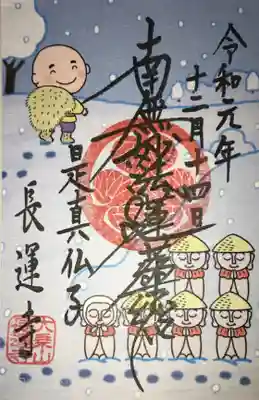 令和元年
十二月十四日
南無妙法蓮華経
是真仏子
長運寺